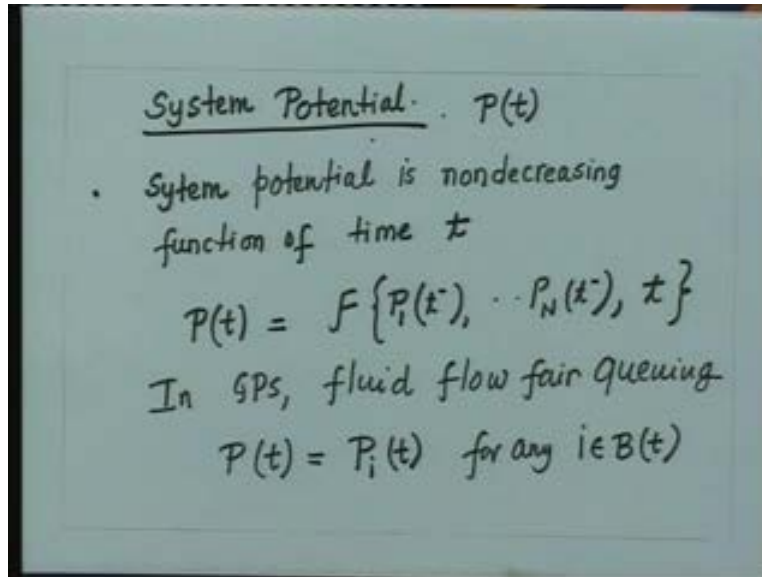 System Potential. P(t)
. Sytem potential is nondecreasing
function of time t
P(t) = F {P₁(t⁻), .. P_N(t⁻), t}
In GPS, fluid flow fair queuing
P(t) = Pᵢ(t) for any i ∈ B(t)